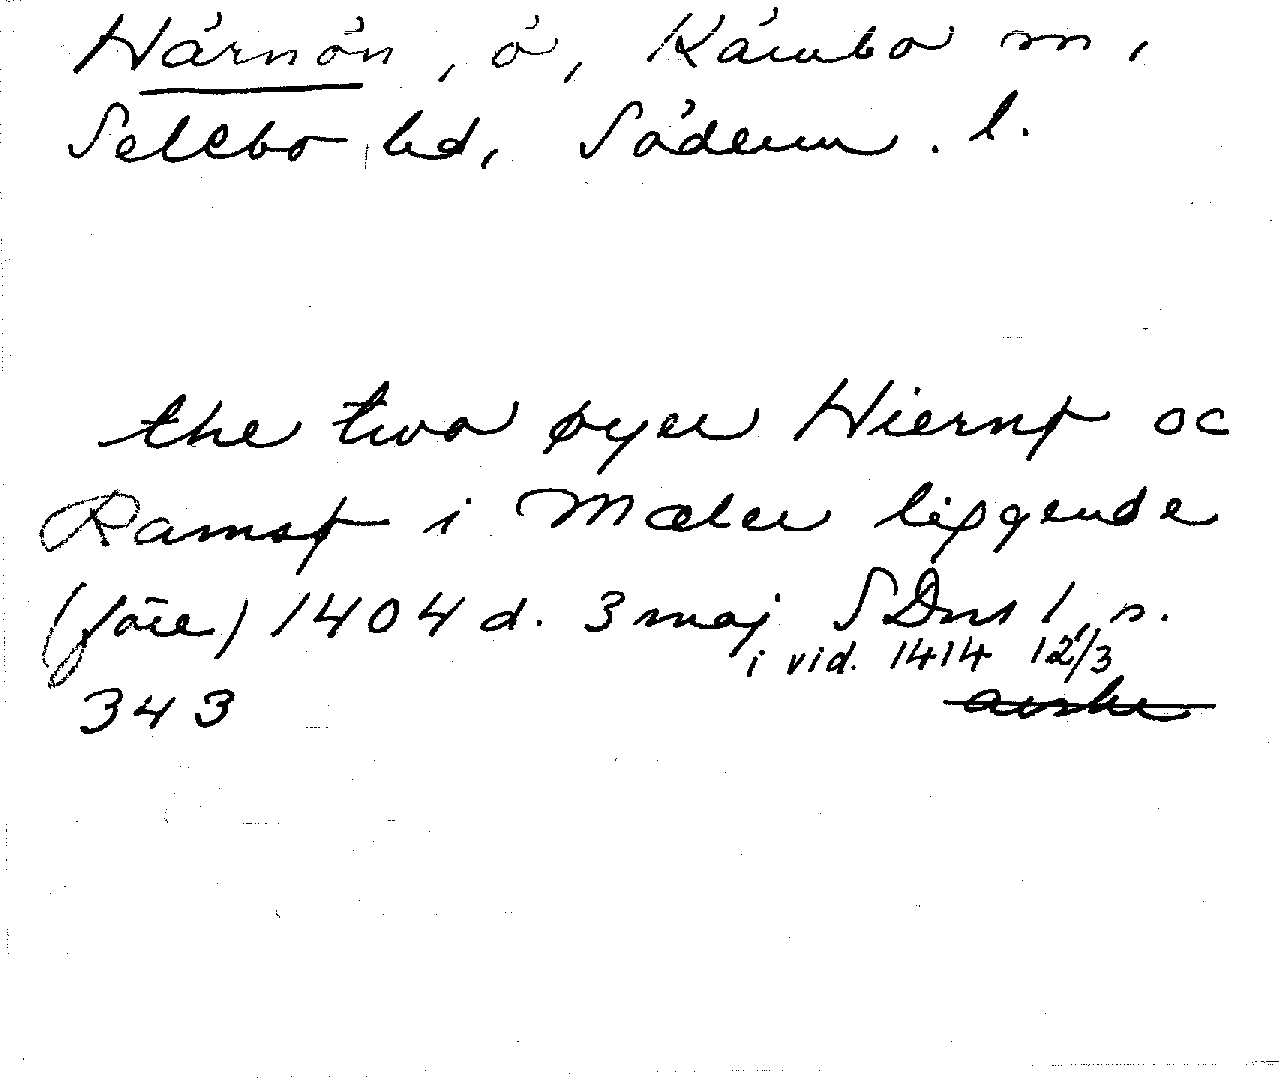 Härnön, ö, Kärnbo sn,
Selebo hd, Söderm. l.
the two øyer Hiernø oc
Ramsø i Mæler liggende
(före) 1404 d. 3 maj SDns 1, s.
i vid. 1414 12/3
343